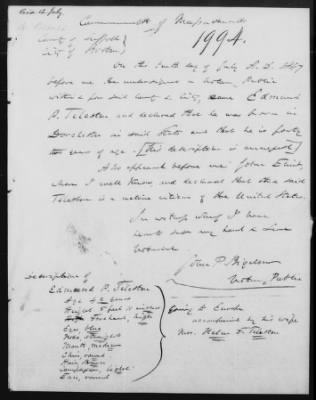 Commonwealth of Massachusetts
County of Suffolk
City of Boston
1994.
On the tenth day of July A.D. 1847
before me the undersigned a Notary Public
within & for said County & City, came Edmund
P. Tileston and declared that he was born in
Dorchester in said State and that he is forty
years of age - [His description is annexed]
Also appeared before me John
whom I well know, and declared that the said
Tileston is a native citizen of the United States.
In witness whereof I have
hereunto set my hand & seal
John P. Bigelow
Notary Public
Description of
Edmund P. Tileston
Age 42 years
Height 5 feet 10 inches
Forehead, high
Eyes, blue
Nose, straight
Mouth, medium
Chin, round
Hair, brown
Complexion, light
Face, round
Going to Europe
accompanied by his wife
Mrs. Helen F. Tileston